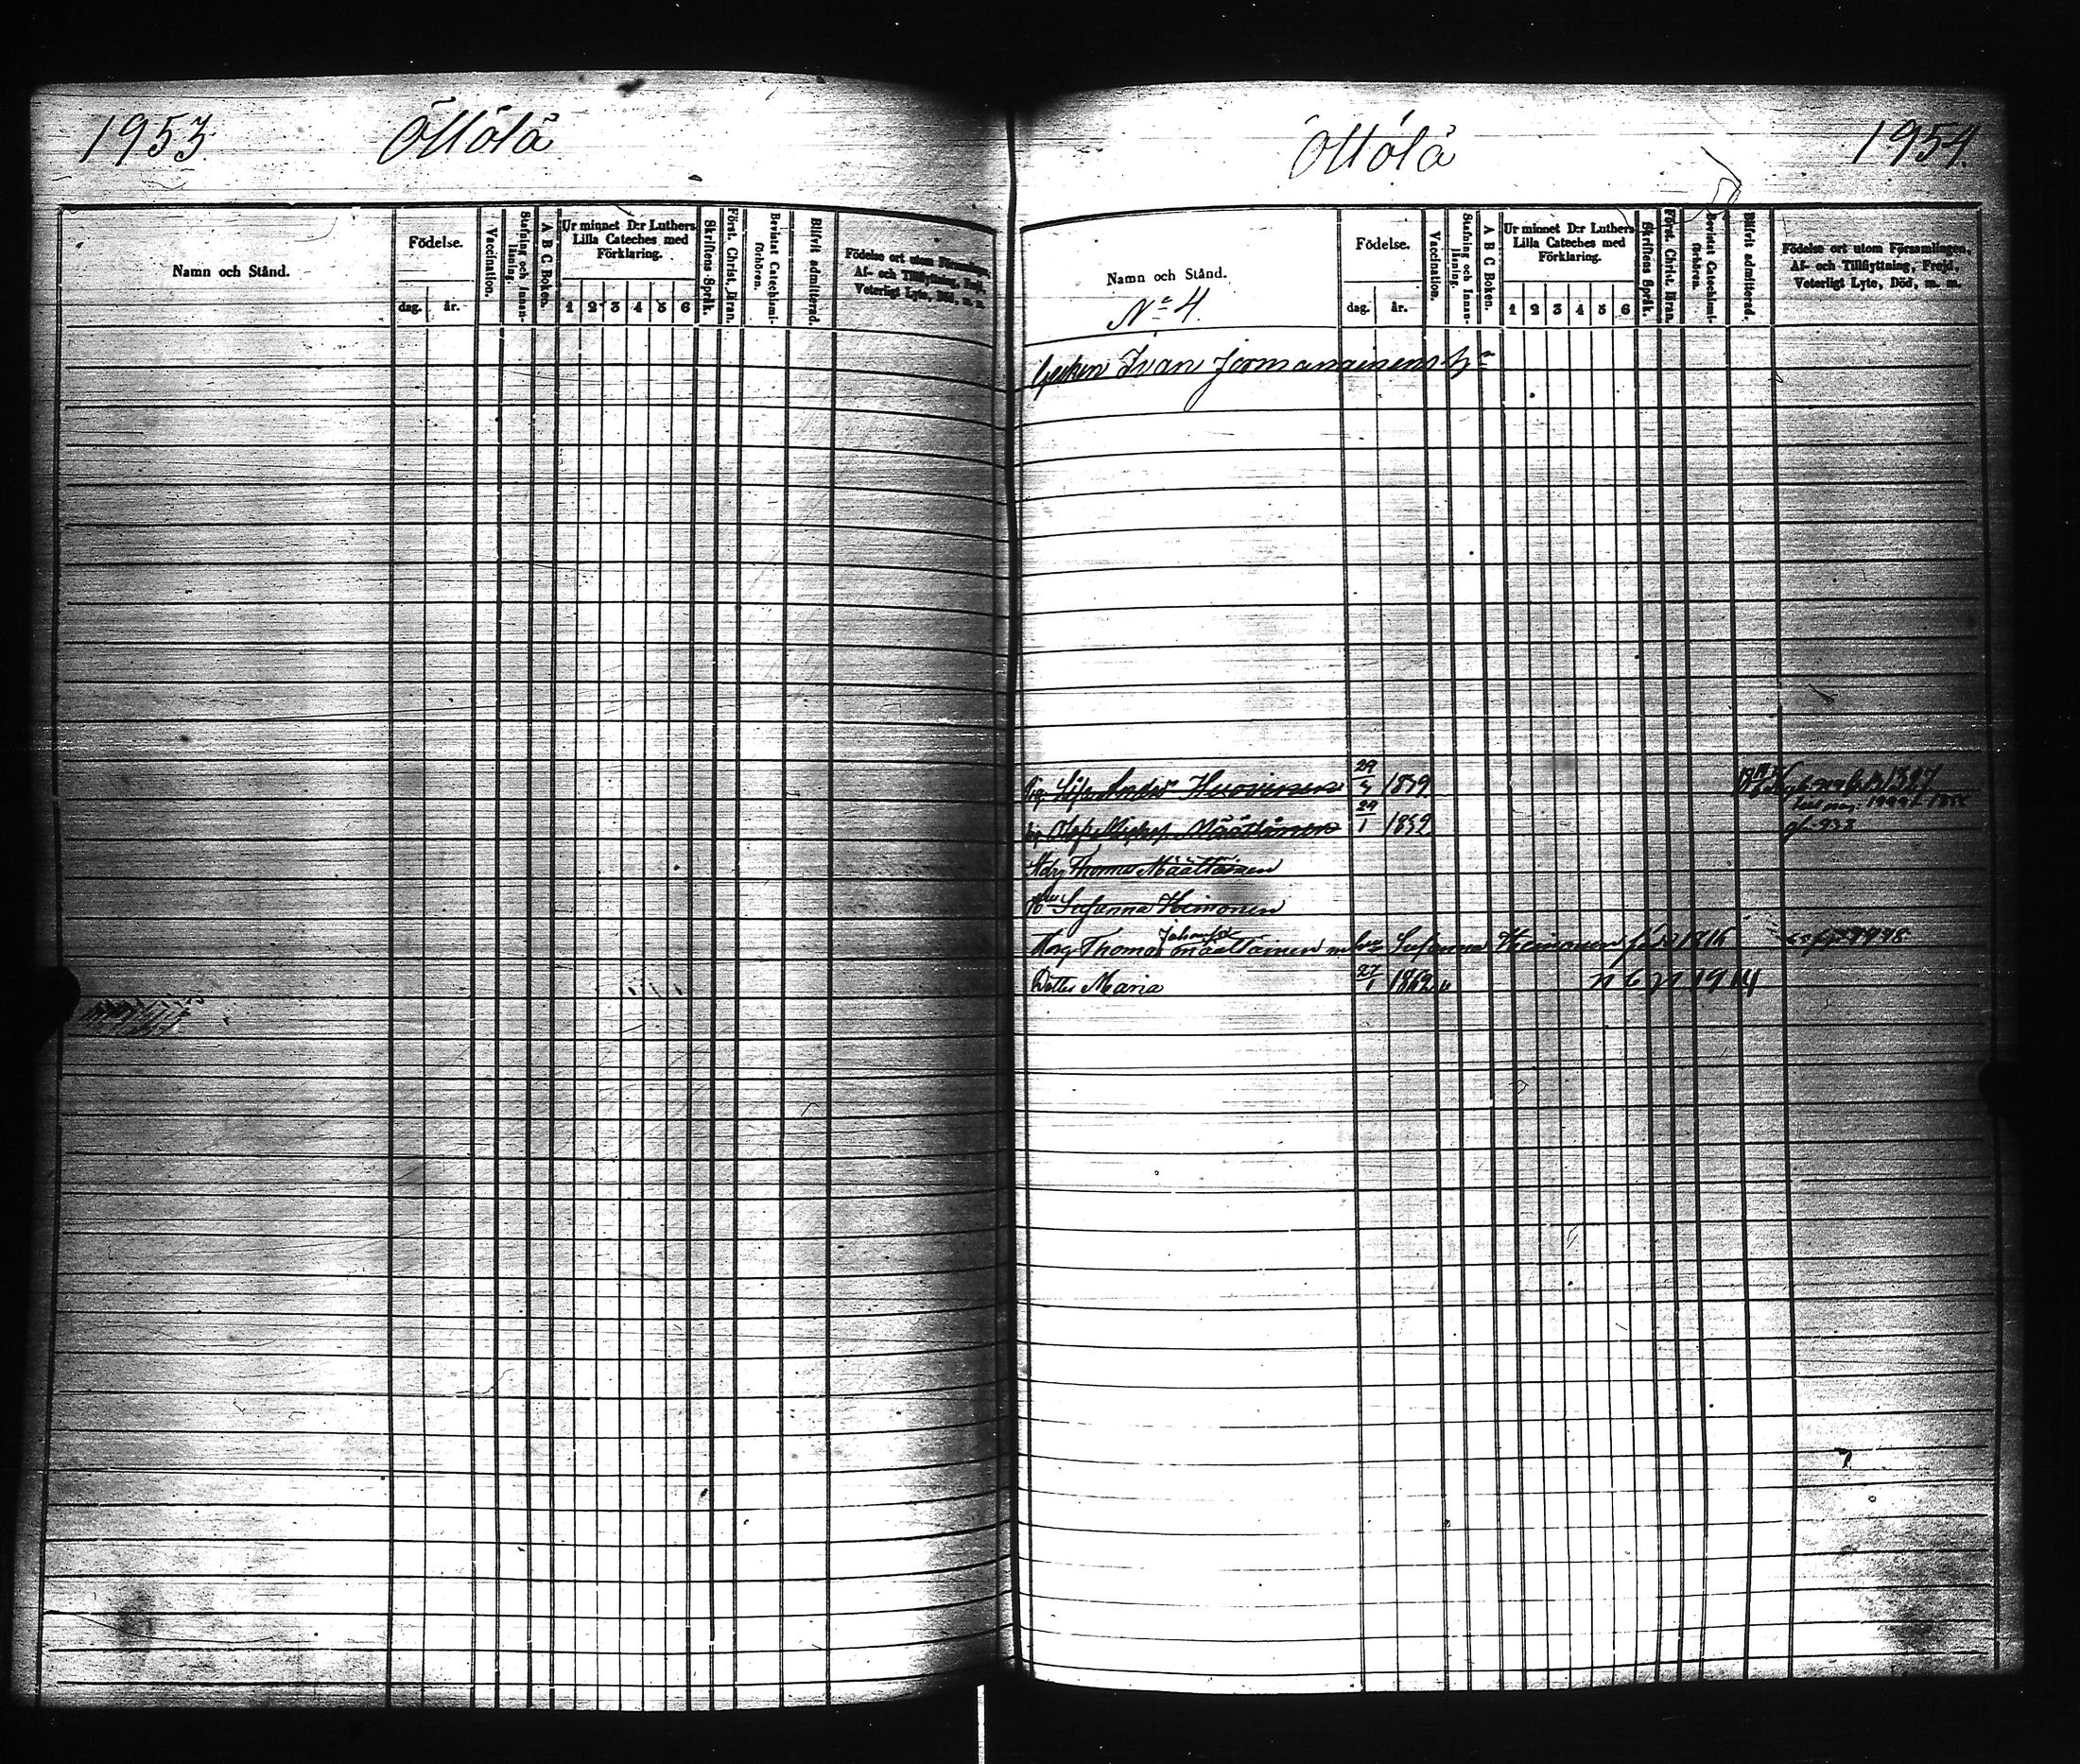 1953.
Öttölä
Namn och Stånd.
Födelse.
dag.
år.
Vaccination.
Stafning och Innanläsning.
A B C Boken.
Ur minnet D:r Luthers Lilla Cateches med Förklaring.
1 2 3 4 5 6
Skriftens Språk.
Först. Christ. läran.
Bevistat Catechismiförhören.
Blifvit admitterad.
Födelse ort utom Församlingen,
Af- och Tillflyttning, Frejd,
Veterligt Lyte, Död, m. m.
Öttölä
1954.
Namn och Stånd.
No 4.
Födelse.
dag.
år.
Vaccination.
Stafning och Innanläsning.
A B C Boken.
Ur minnet D:r Luthers Lilla Cateches med Förklaring.
1 2 3 4 5 6
Skriftens Språk.
Först. Christ. läran.
Bevistat Catechismiförhören.
Blifvit admitterad.
Födelse ort utom Församlingen,
Af- och Tillflyttning, Frejd,
Veterligt Lyte, Död, m. m.
Ivan Jormanainens
Huovinen 29 1839
Määttänen 29/1 1832
Thomas Määttänen
Hu Susanna Heimonen
Thomas Johansson Määttäinen m hu Susanna Heimonen
Dotter Maria 27/1 1862